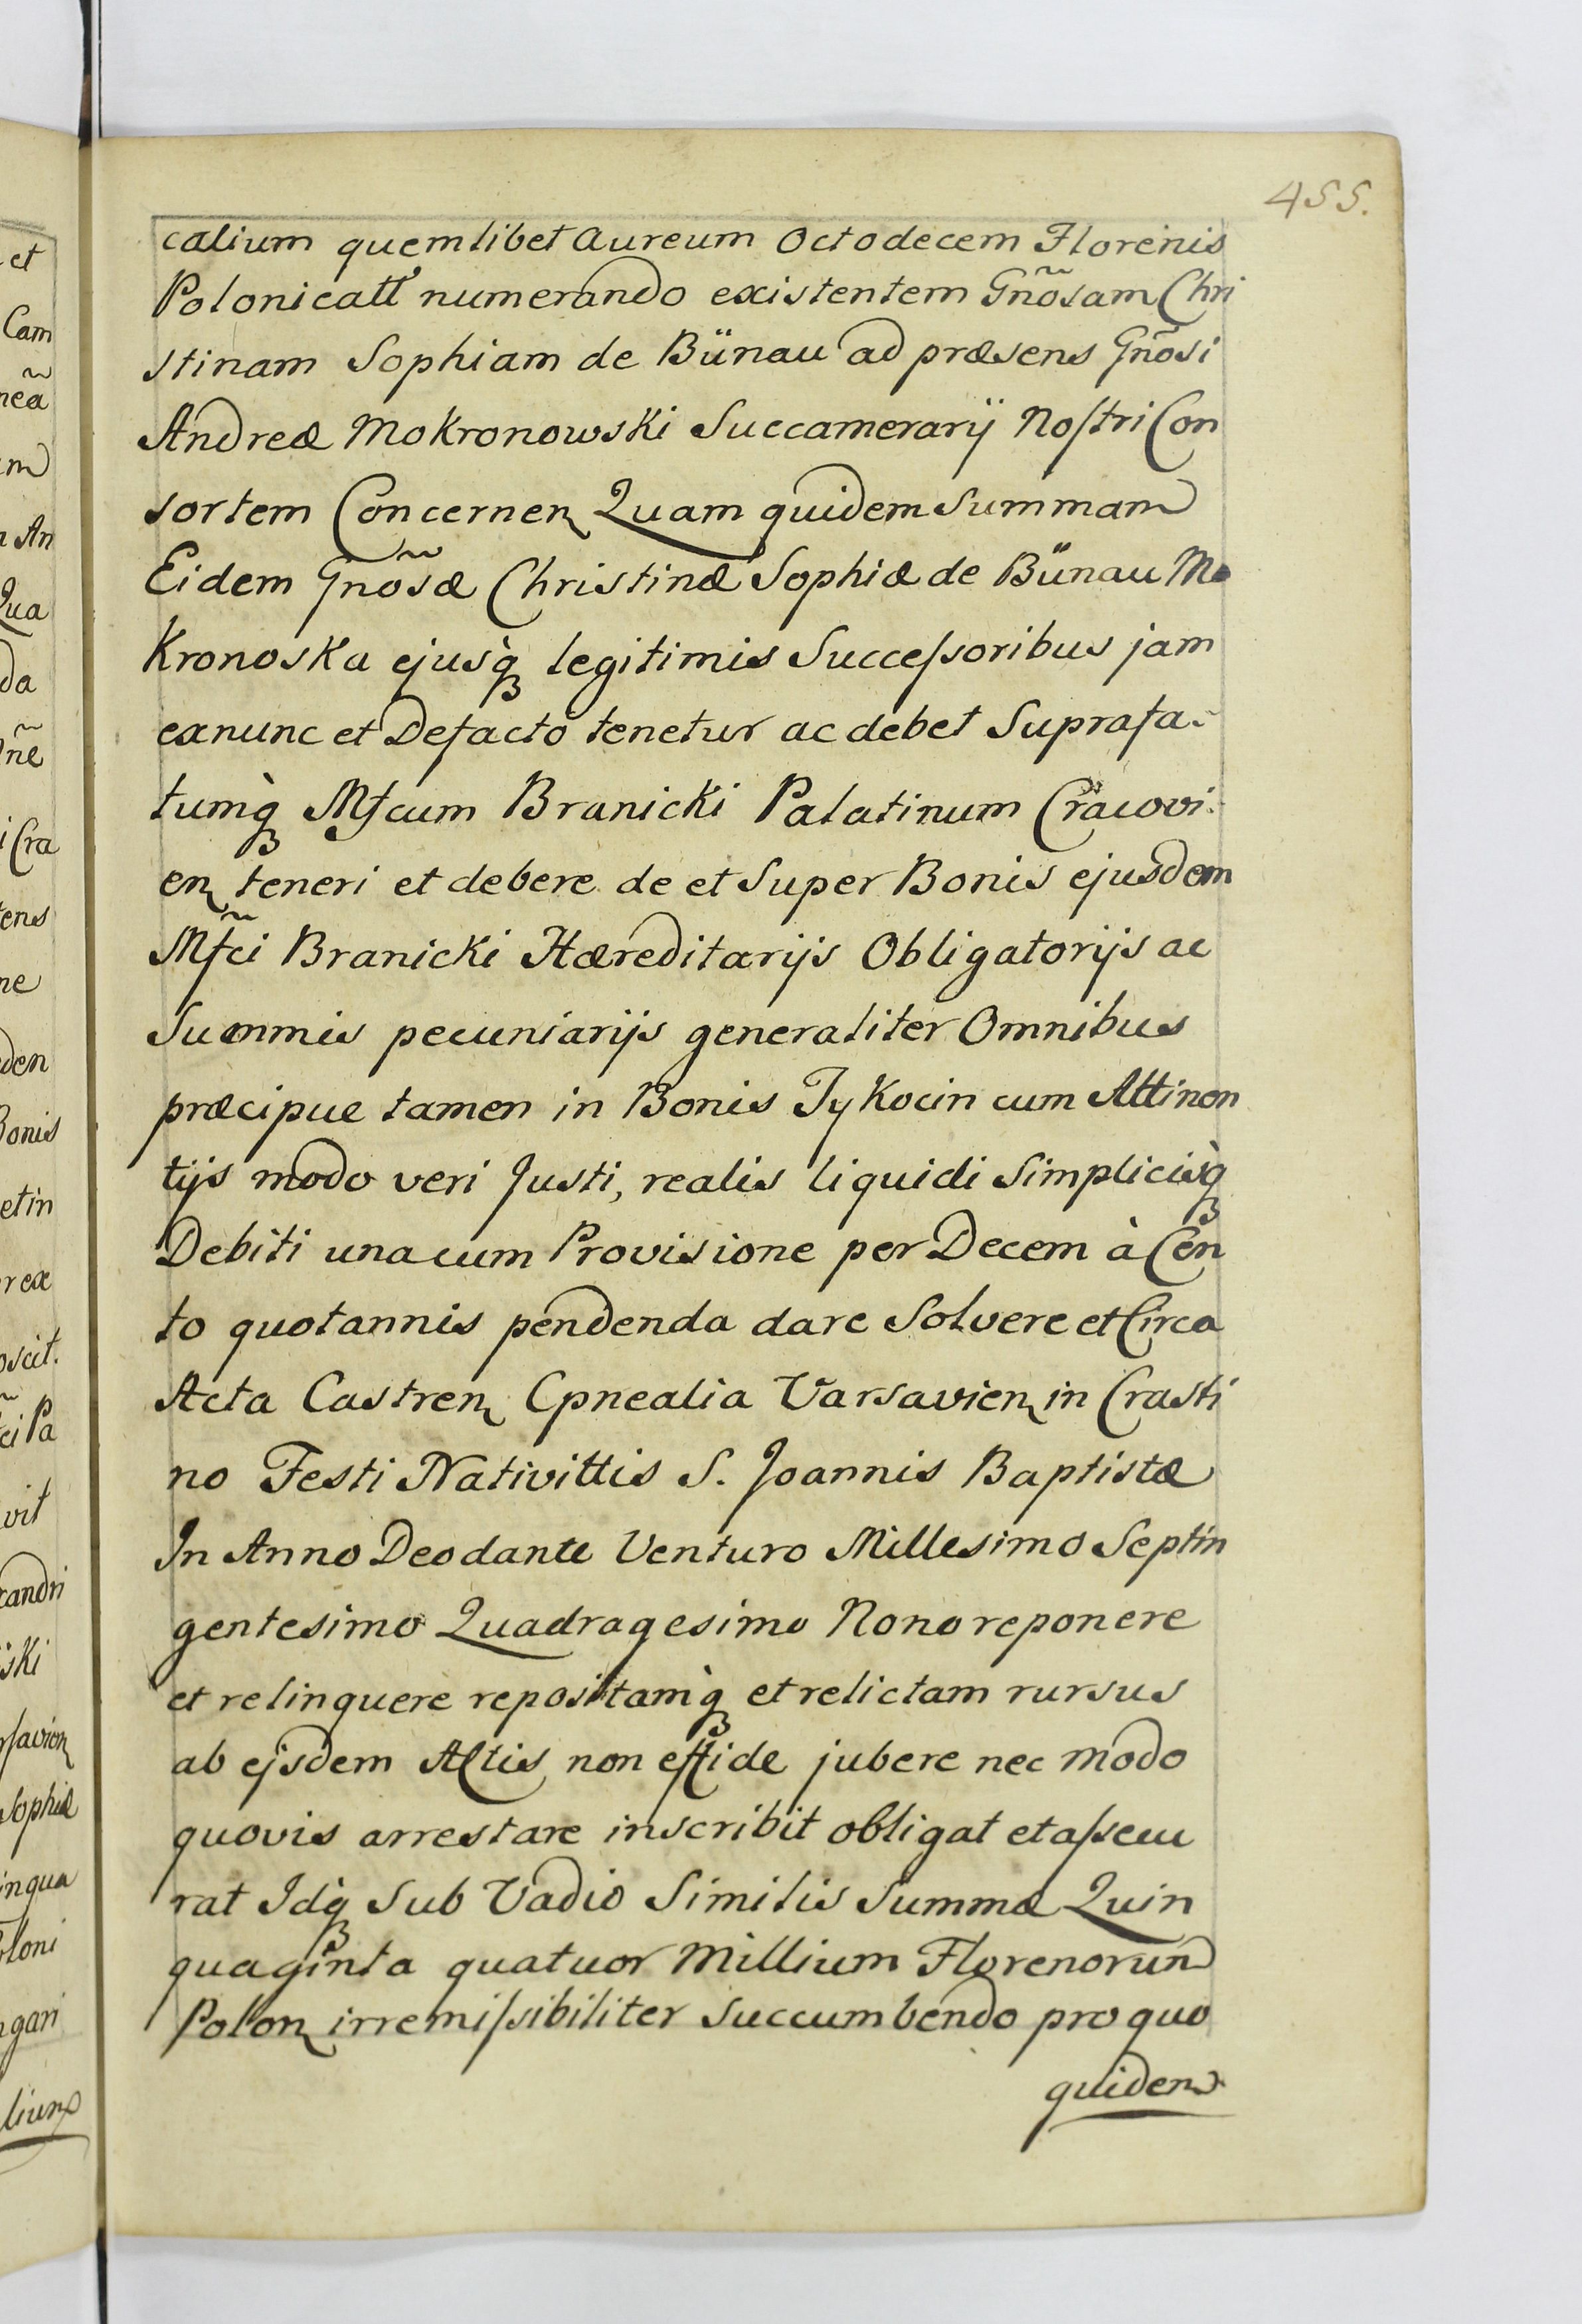 455.
calium quemlibet Aureum Octodecem Florenis
Polonicatt numerando existentem Gnõsam Chri
stinam Sophiam de Bünau ad præsens Gnõsi
Andreæ Mokronowski Succamerarÿ Noſtri Con
sortem Concernen Quam quidem summam
Eidem Gnõsæ Christinæ Sophiæ de Bünau Mo
Kronoska ejusq̀ꝫ legitimis Succeſsoribus jam
exnunc et Defacto tenetur ac debet Suprafa-
tumq̀ꝫ Mfcum Branicki Palatinum Cracovi-
en teneri et debere de et Super Bonis ejusdem
Mfc̃i Branicki Hæreditarijs Obligatorijs ac
Summis pecuniarijs generaliter Omnibus
præcipue tamen in Bonis Tykocin cum Attinen
tijs modo veri Justi, realis liquidi Simplicisq̀ꝫ
Debiti unacum Provisione per Decem à Cen
to quotannis pendenda dare Solvere et Circa
Acta Castren Cpnealia Varsavien in Crasti
no Festi Nativittis S. Joannis Baptistæ
In Anno Deodante Venturo Millesimo Septin
gentesimo Quadragesimo Nono reponere
et relinquere repositamq̀ꝫ et relictam rursus
ab ejsdem Actis non jubere nec modo
quovis arrestare inscribit obligat et aſsecu
rat Idq̀ꝫ Sub Vadio Similis Summæ Quin
quaginta quatuor Millium Florenorum
Polon irremiſsibiliter succumbendo pro quo
quidem
et
Cam
neã
m
An
Qua
da
ñe
i Cra
tens
ne
den
Bonis
etin
rex
oscit.
ci Pa
vit
xandri
ski
rſavien
Sophiæ
inqua
Poloni
ngari
lium